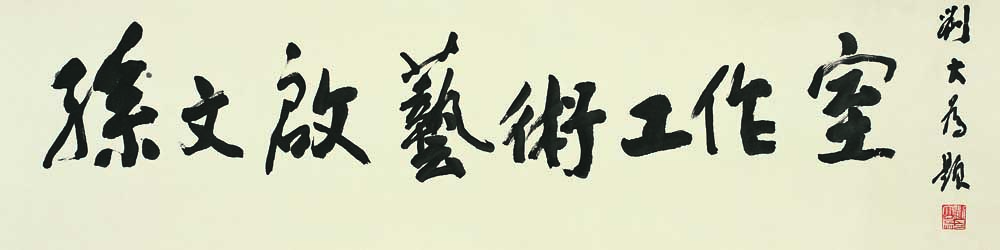 孫文啟藝術工作室
劉大為題